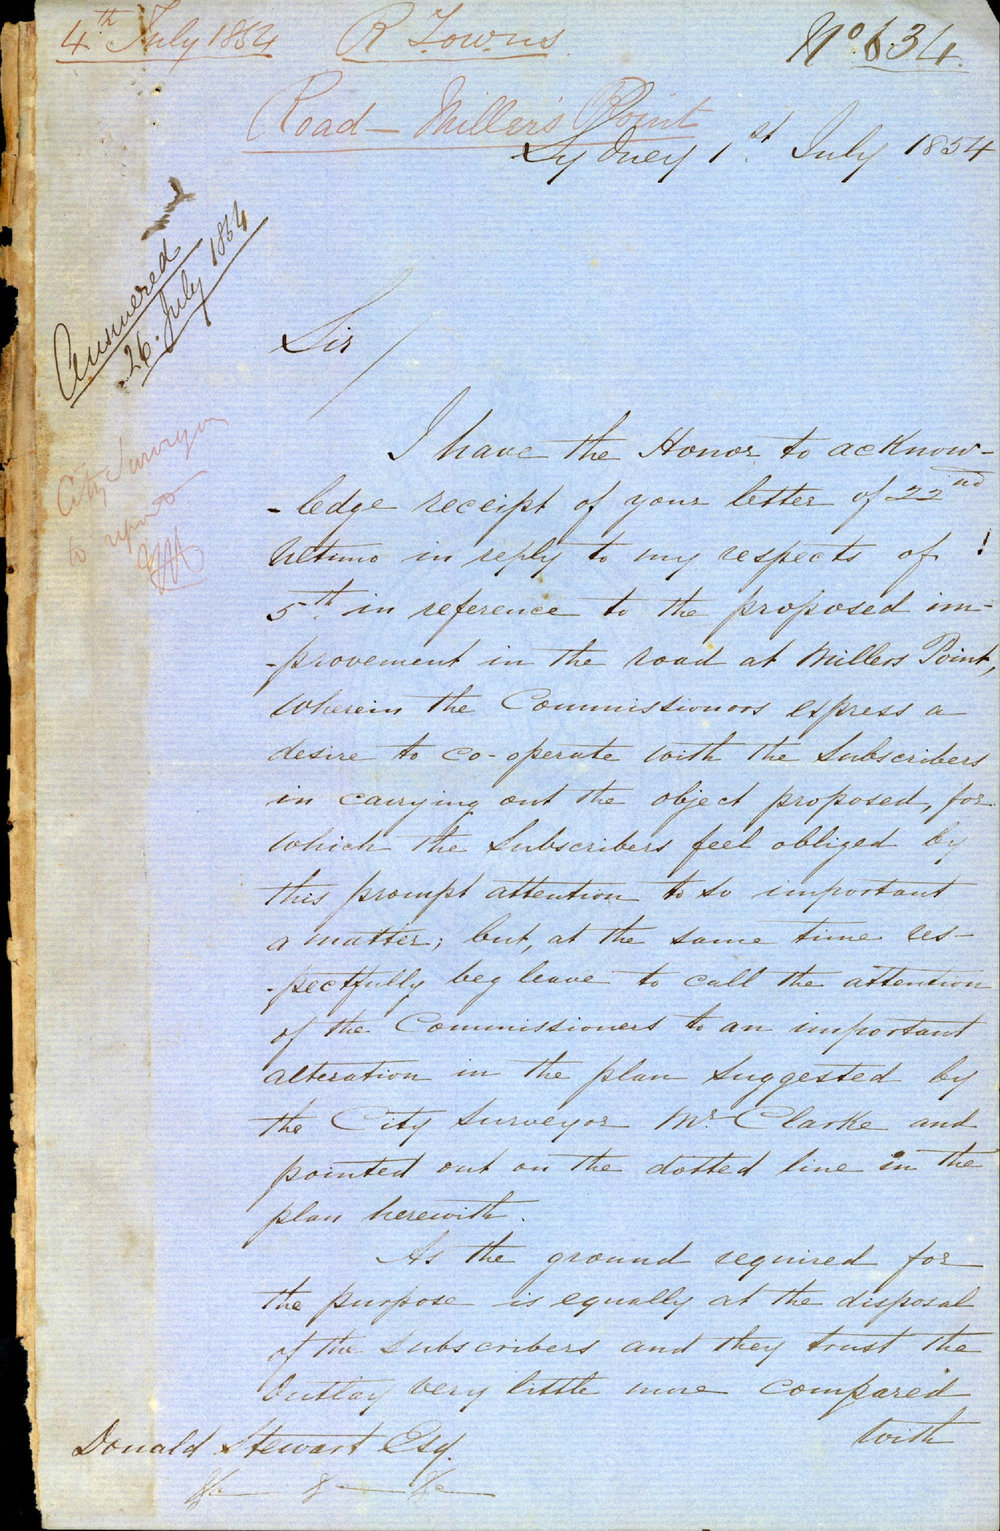 4th July 1854 R Towns No 634.
Road - Miller's Point
Sydney 1st July 1854
Answered
26. July 1854
City Surveyor
to report
Sir /
I have the Honor to acknow-
-ledge receipt of your letter of 22nd
Ultimo in reply to my respects of
5th in reference to the proposed im-
-provement in the road at Millers Point,
wherein the Commissionors express a
desire to co-operate with the Subscribers
in carrying out the object proposed, for
which the Subscribers feel obliged by
this prompt attention to so important
a matter; but, at the same time res-
-pectfully beg leave to call the attention
of the Commissioners to an important
alteration in the plan suggested by
the City Surveyor Mr. Clarke and
pointed out on the dotted line in the
plan herewith.
As the ground required for
the purpose is equally at the disposal
of the Subscribers and they trust the
Outlay very little more compared
with
Donald Stewart Esq.
&c &c &c